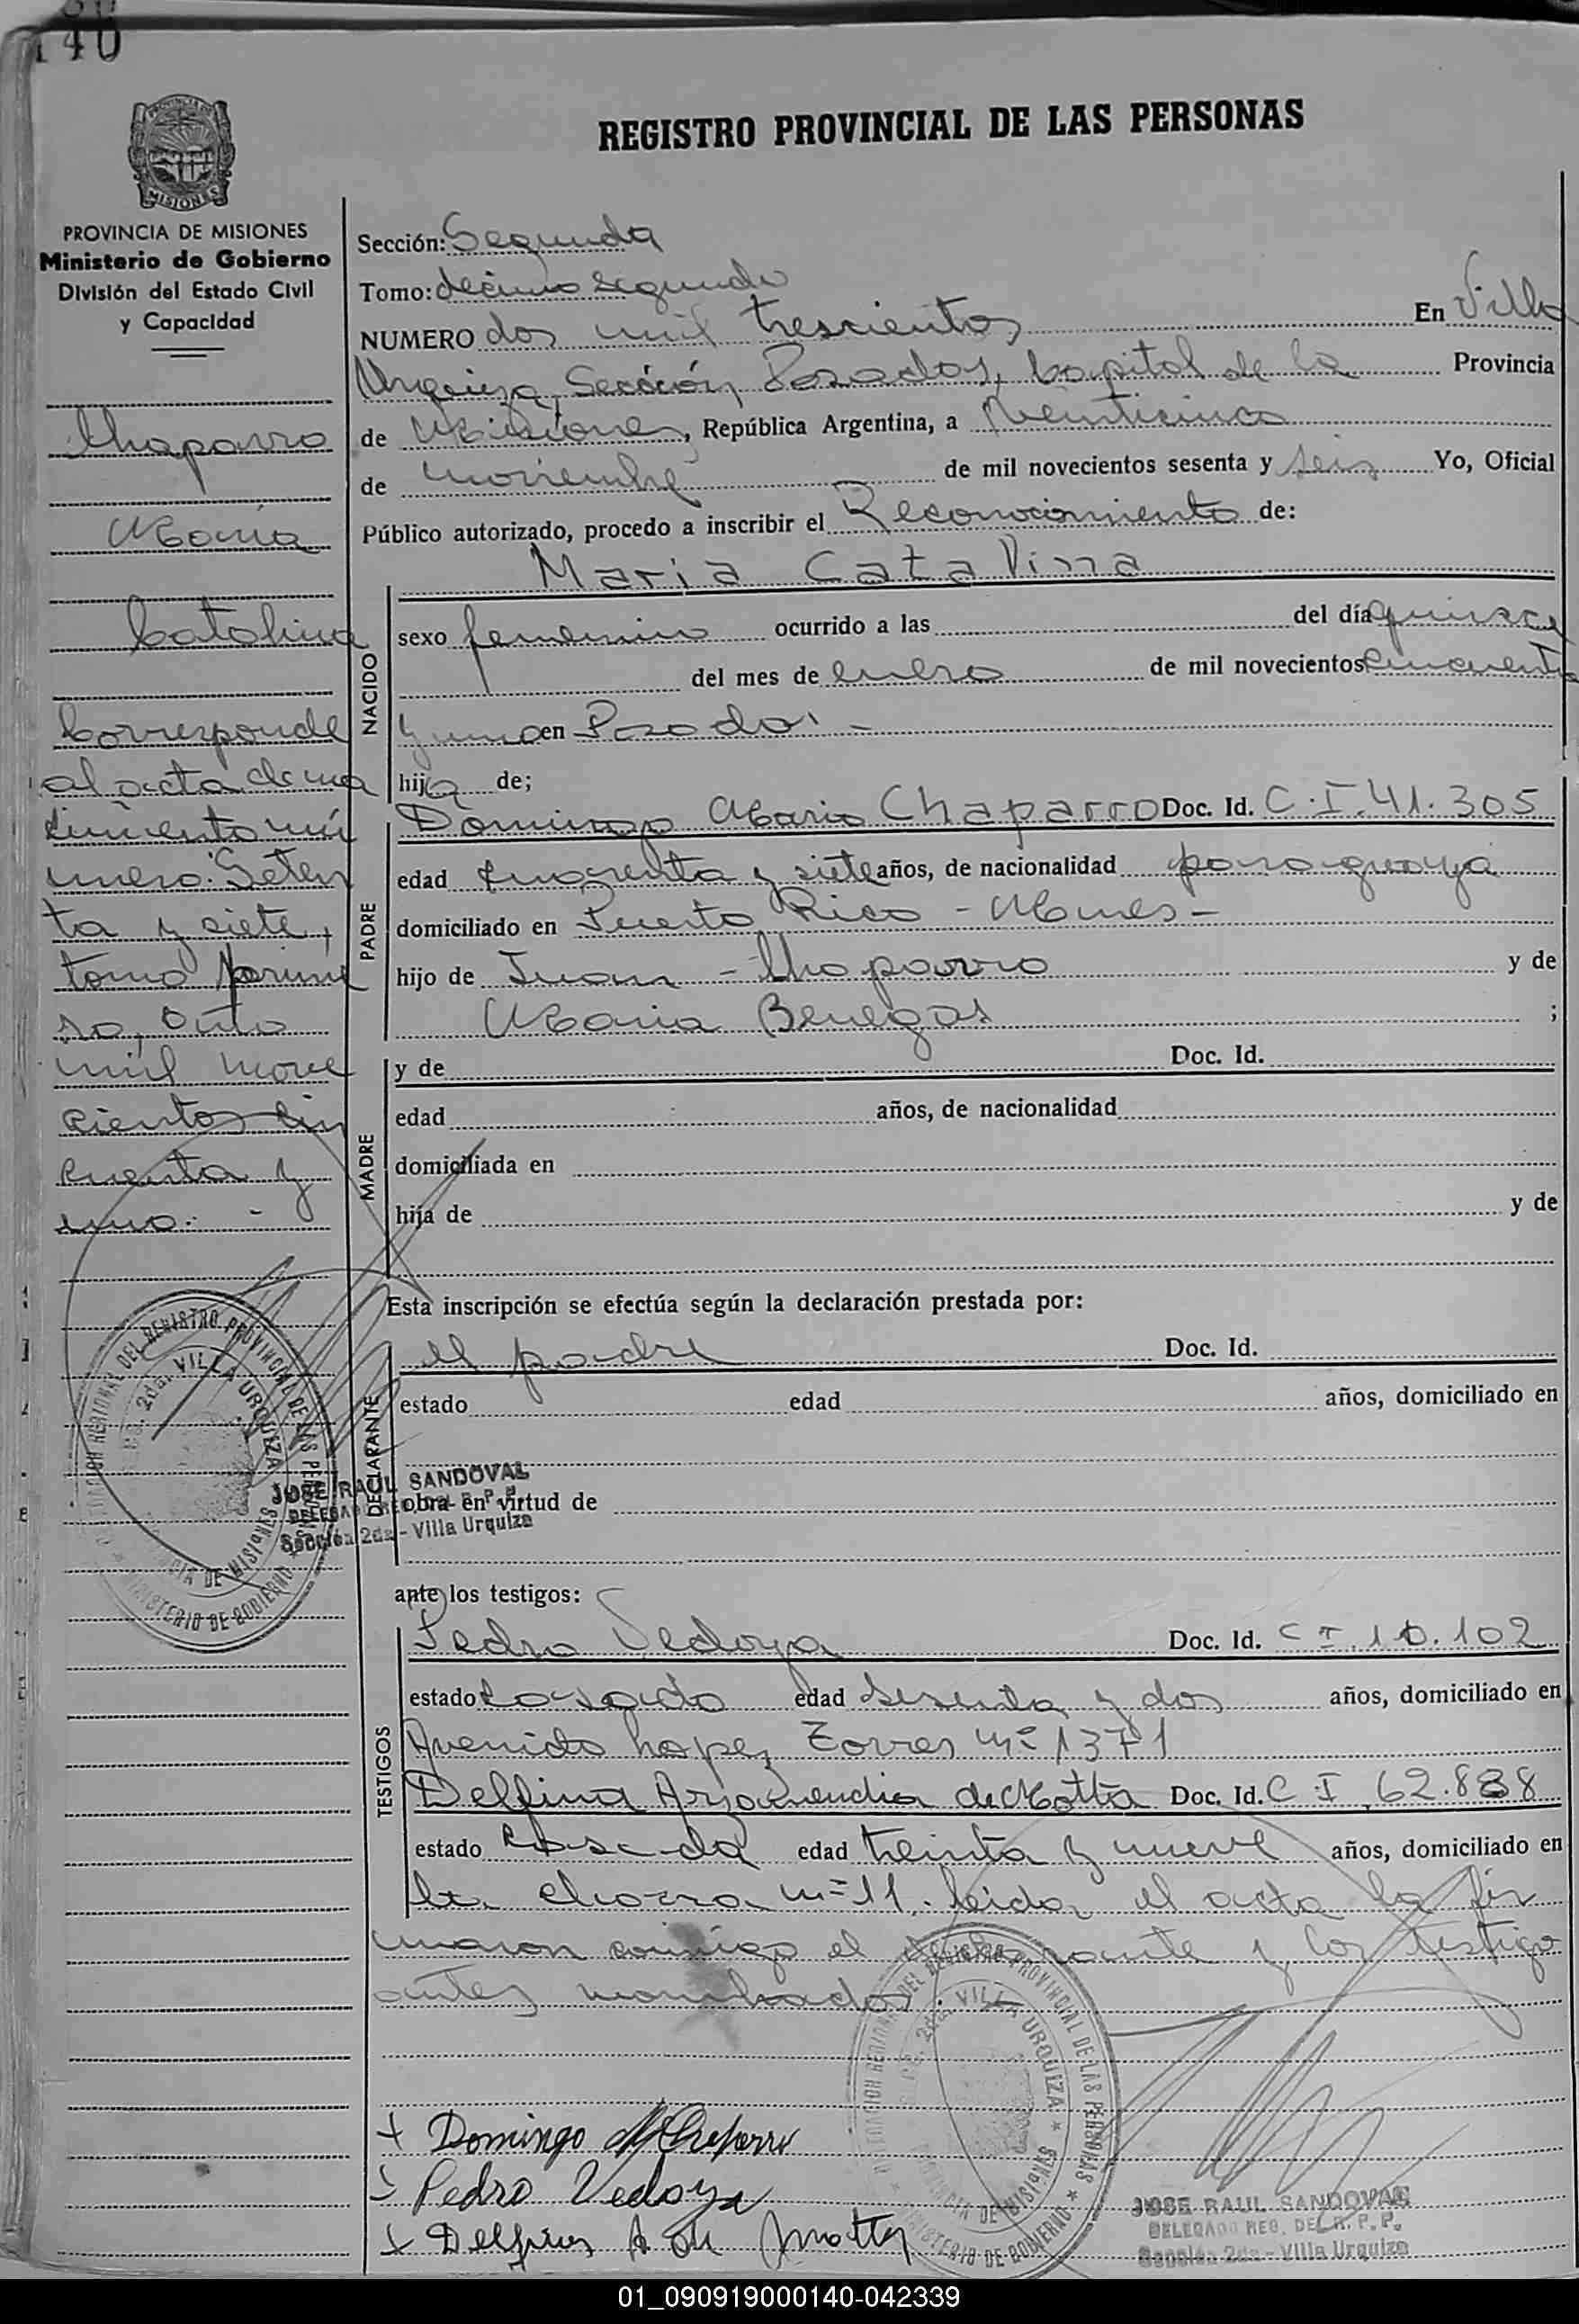 140
REGISTRO PROVINCIAL DE LAS PERSONAS
MISIONES
PROVINCIA DE MISIONES
Ministerio de Gobierno
División del Estado Civil
y Capacidad
Chaparro
Maria
Catalina
Corresponde
al acta de na
cimiento nú
mero: Seten
ta y siete,
tomo prime
ro, año
mil nove
cientos cin
cuenta y
uno. -
Sección: Segunda
Tomo: decimo segundo
NUMERO dos mil trescientos En Villa
Urquiza, Sección Posadas, Capital de la Provincia
de Misiones, República Argentina, a veinticinco
de noviembre de mil novecientos sesenta y seis Yo, Oficial
Público autorizado, procedo a inscribir el Reconocimiento de:
Maria Catalina
NACIDO
sexo femenino ocurrido a las del día quince
del mes de enero de mil novecientos cincuenta
y uno en Posadas -
hija de;
PADRE
Domingo Mario Chaparro Doc. Id. C.I. 41.305
edad cuarenta y siete años, de nacionalidad paraguaya
domiciliado en Puerto Rico - Mnes -
hijo de Juan - Chaparro y de
Maria Benegas ;
MADRE
y de Doc. Id.
edad años, de nacionalidad
domiciliada en
hija de y de
Esta inscripción se efectúa según la declaración prestada por:
DECLARANTE
el padre Doc. Id.
estado edad años, domiciliado en
obra en virtud de
JOSE RAUL SANDOVAL
DELEGADO REG. DEL R. P. P.
Sección 2da - Villa Urquiza
DELEGACION REGIONAL DEL REGISTRO PROVINCIAL DE LAS PERSONAS
2da. VILLA URQUIZA
PROVINCIA DE MISIONES
MINISTERIO DE GOBIERNO
ante los testigos:
TESTIGOS
Pedro Vedoya Doc. Id. C I. 10.102
estado casado edad sesenta y dos años, domiciliado en
Avenida Lopez Torres nº 1371
Delfina Arjamendia de Motta Doc. Id. C I 62.838
estado casada edad treinta y nueve años, domiciliado en
la chacra nº 11. leida el acta la fir
maron conmigo el declarante y los testigo
antes nombrados
DELEGACION REGIONAL DEL REGISTRO PROVINCIAL DE LAS PERSONAS
2da. VILLA URQUIZA
PROVINCIA DE MISIONES
MINISTERIO DE GOBIERNO
Domingo M Chaparro
Pedro Vedoya
Delfina A de Motta
JOSE RAUL SANDOVAL
DELEGADO REG. DEL R. P. P.
Sección 2da - Villa Urquiza
01_090919000140-042339